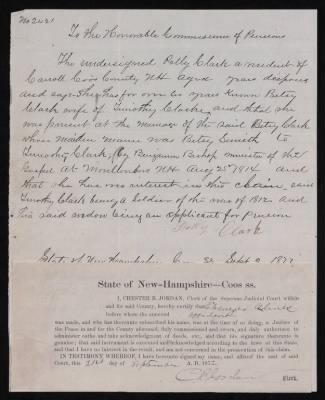 To the Honorable Commissioner of Pensions
The undersigned Polly Clark a resident of
Carroll Coos County NH aged years deposes
and says she has for over 60 years known Betsy
Clark wife of Timothy Clark, and that she
was present at the marriage of the said Betsy Clark
whose maiden name was Betsy Smith to
Timothy Clark, By Benjamin Bishop minister of the
Gospel at Moultonboro NH Aug 21st 1814 and
that she has no interest in this claim, said
Timothy Clark being a Soldier of the war of 1812 and
his said widow being an applicant for Pension
Polly Clark
State of New Hampshire Sept 1872
State of New-Hampshire—Coos ss.
I, CHESTER B. JORDAN, Clerk of the Supreme Judicial Court within
and for said County, hereby certify that
before whom the annexed
was made, and who has thereunto subscribed his name, was at the time of so doing, a Justice of
the Peace in and for the County aforesaid, duly commissioned and sworn, and duly authorized to
administer oaths and take acknowledgment of deeds, etc., and that his signature thereunto is
genuine; that said instrument is executed and acknowledged according to the laws of this state,
and that I have no interest in the result, and am not concerned in the prosecution of this claim.
IN TESTIMONY WHEREOF, I have hereunto signed my name, and affixed the seal of said
Court, this day of September A. D. 1872.
C B Jordan Clerk.